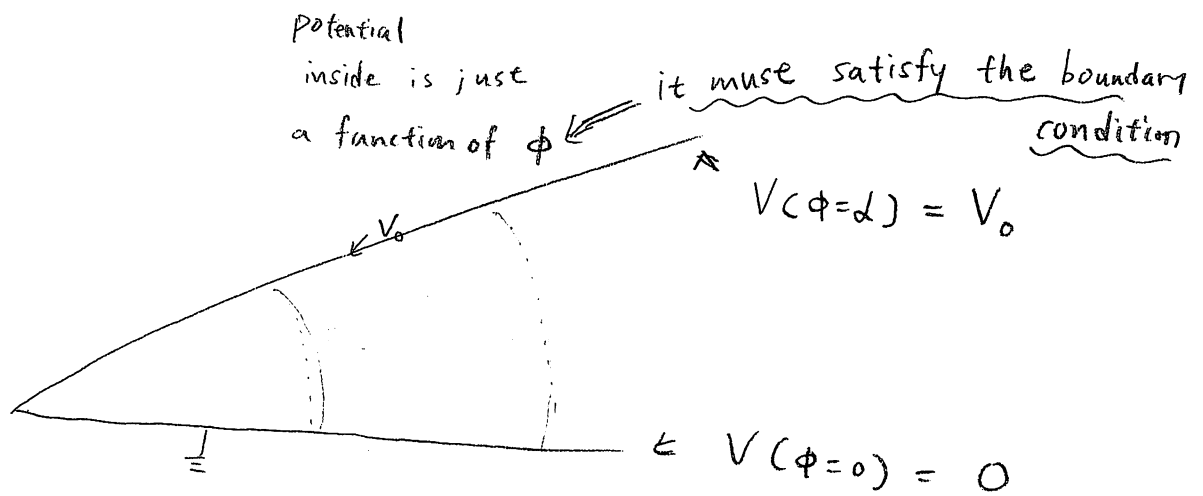 potential
inside is just
a function of ϕ
it muse satisfy the boundary
condition
V(ϕ=α) = V₀
V₀
V(ϕ=0) = 0